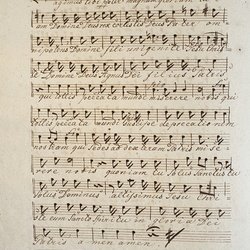 agimus tibi propter magnam gloriam tu
am Domine Deus rex coelestis Deus Pater om
nipotens Domine fili unigenite Jesu
te Domine Deus agnus Dei filius Patris
qui tollis peccata mundi miserere nobis qui
tollis peccata mundi suscipe deprecationem
nostram qui sedes ad dexteram Patris mise
rere nobis quoniam tu solus Sanctus tu
solus Dominus altissimus Jesu Chri
ste cum Sancto Spiritu in gloria Dei
Patris a men amen